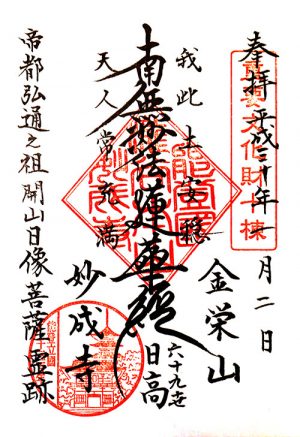 奉拝 平成三十年一月二日
重要文化財十棟
金栄山
我此土安穏
南無妙法蓮華経
天人常充満
六十九世
日高
妙成寺
帝都弘通之祖開山日像菩薩霊跡